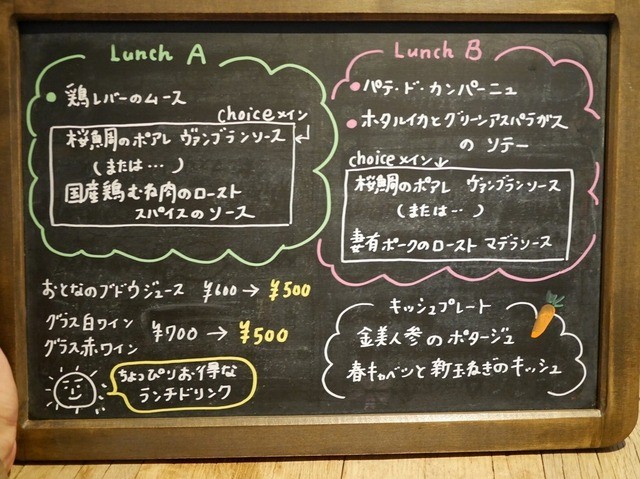 Lunch A
鶏レバーのムース
choiceメイン
桜鯛のポアレ ヴァンブランソース
(または…)
国産鶏むね肉のロースト
スパイスのソース
Lunch B
パテ・ド・カンパーニュ
ホタルイカとグリーンアスパラガス
の ソテー
choiceメイン
桜鯛のポアレ ヴァンブランソース
(または…)
妻有ポークのロースト マデラソース
おとなのブドウジュース ¥600→¥500
グラス白ワイン
グラス赤ワイン
¥700→¥500
ちょっぴりお得な
ランチドリンク
キッシュプレート
金美人参のポタージュ
春キャベツと新玉ねぎのキッシュ